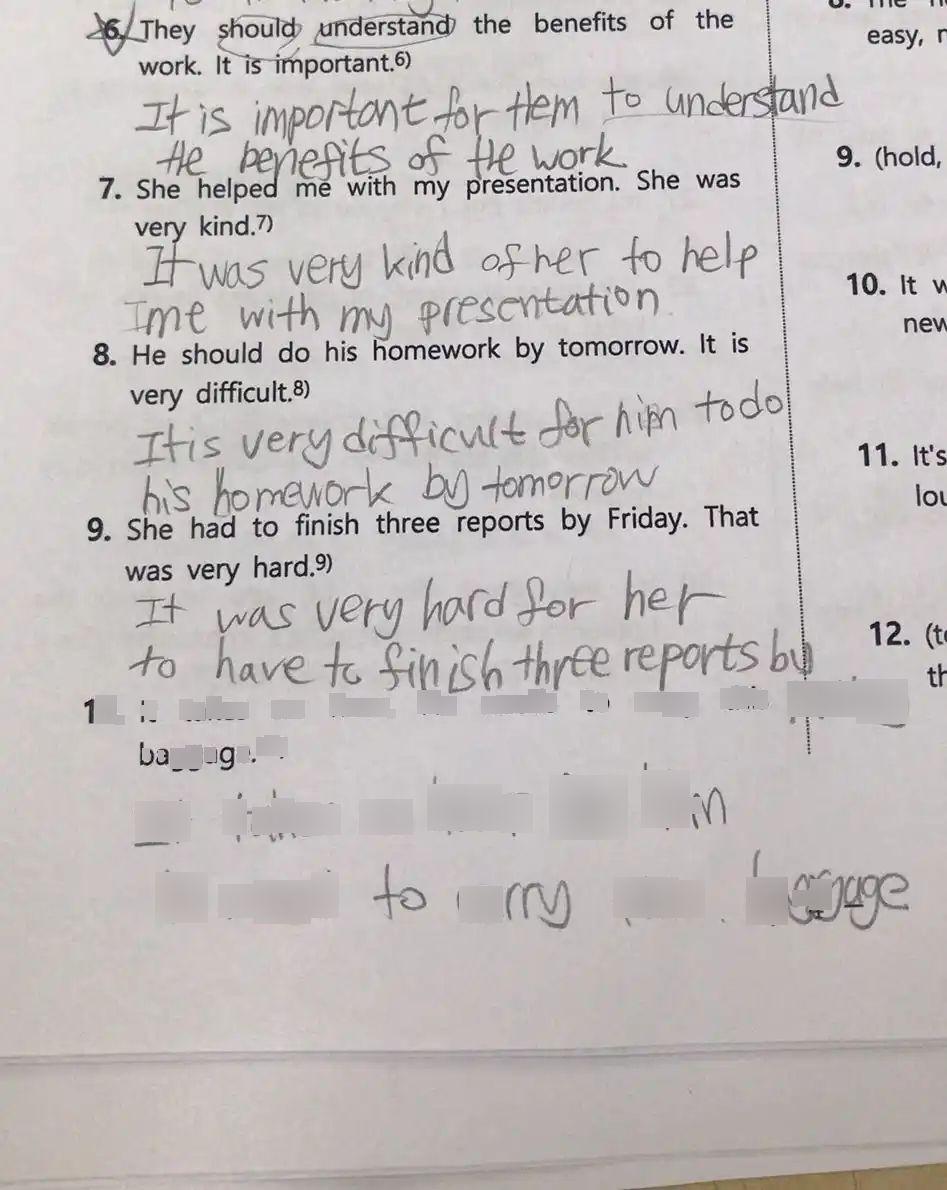 6. They should understand the benefits of the
work. It is important.6)
It is important for them to understand
the benefits of the work
7. She helped me with my presentation. She was
very kind.7)
It was very kind of her to help
me with my presentation
8. He should do his homework by tomorrow. It is
very difficult.8)
It is very difficult for him to do
his homework by tomorrow
9. She had to finish three reports by Friday. That
was very hard.9)
It was very hard for her
to have to finish three reports by
in
to
easy,
9. (hold,
10. It
new
11. It's
lou
12.
th